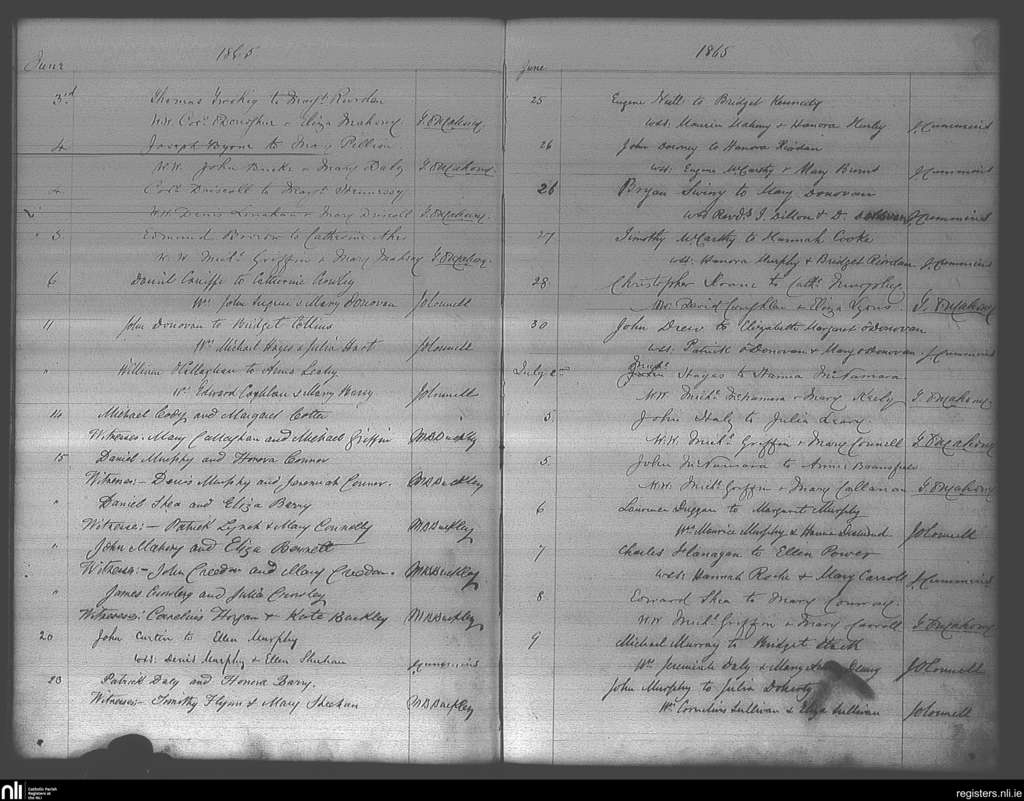 1865
June
3rd Thomas to Margt Riordan
W.W. Corns O'Donoghue & Eliza Mahony J. O'Mahony
4 Joseph Byrne to Mary
W.W. John Burke & Mary Daly J. O'Mahony
4 Corns Driscoll to Margt Hennessy
W.W. Denis & Mary Driscoll J. O'Mahony
5 Edmund to Catherine
W.W. Michl Griffin & Mary Mahony J. O'Mahony
6 Daniel to Catherine Crowley
Ws John & Mary Donovan J O'Connell
11 John Donovan to Bridget Collins
Ws Michael Hayes & Julia Hart J O'Connell
" William O'Callaghan to Leahy
Ws Edward Coghlan & Mary Barry J O'Connell
14 Michael Cody and Margaret Cotter
Witnesses: Mary Callaghan and Michael Griffin M.B. Buckley
15 Daniel Murphy and Honora Connor
Witnesses:- Denis Murphy and Jeremiah Connor. M.B. Buckley
" Daniel Shea and Eliza Barry
Witnesses:- Patrick Lynch & Mary Connolly M.B. Buckley
" John Mahony and Eliza Bennett
Witnesses:- John Creedon and Mary Creedon. M.B. Buckley
" James Crowley and Julia Crowley
Witnesses: Cornelius Horgan & Kate Buckley M.B. Buckley
20 John Curtin to Ellen Murphy
Wss: Denis Murphy & Ellen Sheehan J. Cummins
23 Patrick Daly and Honora Barry.
Witnesses:- Timothy Flynn & Mary Sheehan M.B. Buckley
1865
June
25 Eugene Neill to Bridget Kennedy
Wss: Maurice Mahony & Hanora Hurley J. Cummins
26 John to Hanora Riordan
Wss: Eugene McCarthy & Mary Burns J. Cummins
26 Bryan Swiny to Mary Donovan
Wss Revds J. Dillon & D. J. Cummins
27 Timothy McCarthy to Hannah Cooke
Wss: Hanora Murphy & Bridget Riordan J. Cummins
28 Christopher to Cathe Murphy.
W.W. David Coughlan & Eliza Lyons. J. O'Mahony
30 John Drew to Elizabeth Margaret O'Donovan
Wss: Patrick O'Donovan & Mary O'Donovan. J. Cummins
July 2nd Michl Hayes to Hanna McNamara
W.W. Michl McNamara & Mary J. O'Mahony.
5 John Haly to Julia Leary.
W.W. Michl Griffin & Mary Connell J. O'Mahony
5 John McNamara to Annie
W.W. Michl Griffin & Mary Callanan J. O'Mahony
6 Laurence Duggan to Margaret Murphy
Ws Maurice Murphy & J O'Connell
7 Charles Flanagan to Ellen Power
Wss: Hannah Roche & Mary Carroll J. Cummins
8 Edward Shea to Mary Conway.
W.W. Michl Griffin & Mary Carroll J. O'Mahony
9 Michael Murray to Bridget
Ws Jeremiah Daly & Mary J O'Connell
John Murphy to Julia Doherty
Ws Cornelius Sullivan & Eliza Sullivan J O'Connell
nli Catholic Parish Registers at the NLI
registers.nli.ie